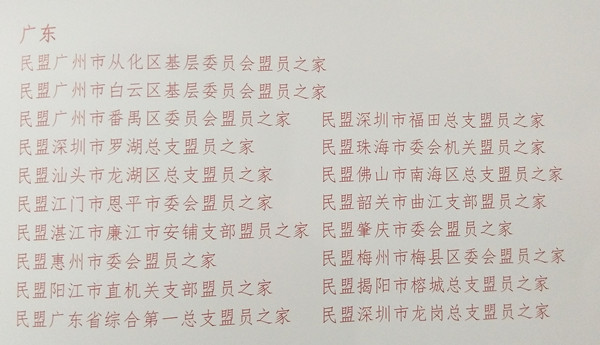 广东
民盟广州市从化区基层委员会盟员之家
民盟广州市白云区基层委员会盟员之家
民盟广州市番禺区委员会盟员之家
民盟深圳市罗湖总支盟员之家
民盟汕头市龙湖区总支盟员之家
民盟江门市恩平市委会盟员之家
民盟湛江市廉江市安铺支部盟员之家
民盟惠州市委会盟员之家
民盟阳江市直机关支部盟员之家
民盟广东省综合第一总支盟员之家
民盟深圳市福田总支盟员之家
民盟珠海市委会机关盟员之家
民盟佛山市南海区总支盟员之家
民盟韶关市曲江支部盟员之家
民盟肇庆市委会盟员之家
民盟梅州市梅县区委会盟员之家
民盟揭阳市榕城总支盟员之家
民盟深圳市龙岗总支盟员之家